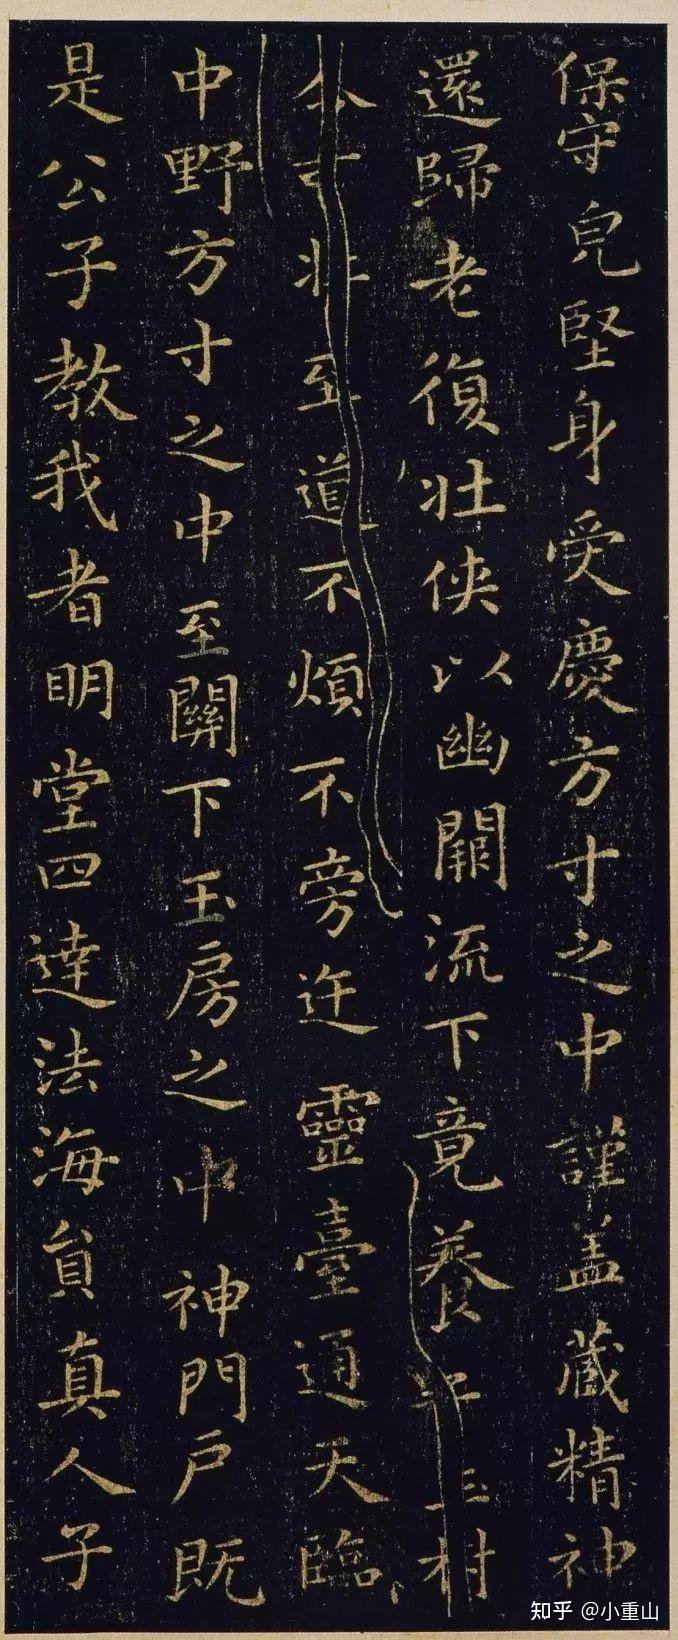 保守皃堅身受慶方寸之中謹盖蔵精神
還歸老復壯侠以幽闕流下竟養
至道不煩不旁迕靈臺通天臨
中野方寸之中至關下玉房之中神門戶既
是公子教我者明堂四達法海負真人子
知乎 @小重山